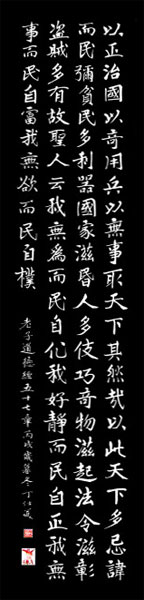 以正治國以奇用兵以無事取天下其然哉以此天下多忌諱
而民彌貧民多利器國家滋昏人多伎巧奇物滋起法令滋彰
盜賊多有故聖人云我無為而民自化我好靜而民自正我無
事而民自富我無欲而民自樸
老子道德經五十七章丙戌歲暮冬丁仕美